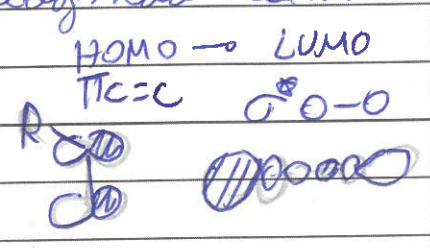 HOMO → LUMO
πC=C σ* O-O
R